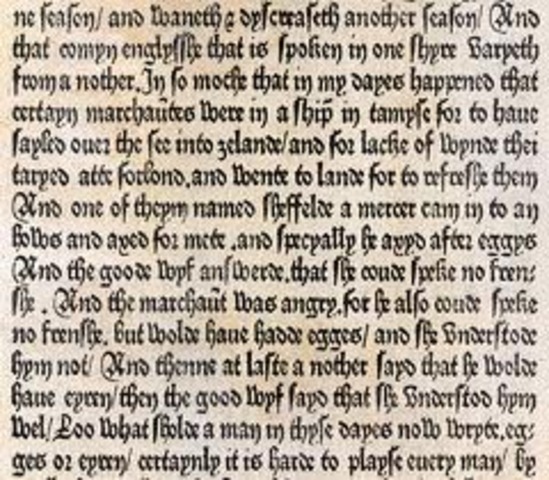 ne season/ and waneth & dyscreaseth another season/ And
that comyn englysshe that is spoken in one shyre varyeth
from a nother. In so moche that in my dayes happened that
certayn marchaũtes were in a ship̃ in tamyse for to haue
sayled ouer the see into zelande/ and for lacke of wynde thei
taryed atte forlond. and wente to lande for to refreshe them
And one of theym named sheffelde a mercer cam in to an
hows and axed for mete. and specyally he axyd after eggys
And the goode wyf answerde. that she coude speke no fren-
she. And the marchaũt was angry. for he also coude speke
no frenshe. but wolde haue hadde egges/ and she vnderstode
hym not/ And thenne at laste a nother sayd that he wolde
haue eyren/ then the good wyf sayd that she vnderstod hym
wel/ Loo what sholde a man in thyse dayes now wryte. eg-
ges or eyren/ certaynly it is harde to playse euery man/ by